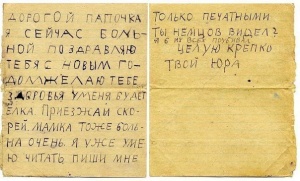 ДОРОГОЙ ПАПОЧКА
Я СЕЙЧАС БОЛЬ-
НОЙ ПОЗДРАВЛЯЮ
ТЕБЯ С НОВЫМ ГО-
ДОМ ЖЕЛАЮ ТЕБЕ
ЗДОРОВЬЯ У МЕНЯ
ЕЛКА. ПРИЕЗЖАЙ СКО-
РЕЙ. МАМКА ТОЖЕ БОЛЬ-
НА ОЧЕНЬ. Я УЖЕ УМЕ
Ю ЧИТАТЬ ПИШИ МНЕ
ТОЛЬКО ПЕЧАТНЫМИ
ТЫ НЕМЦОВ ВИДЕЛ?
ВСЕХ
ЦЕЛУЮ КРЕПКО
ТВОЙ ЮРА